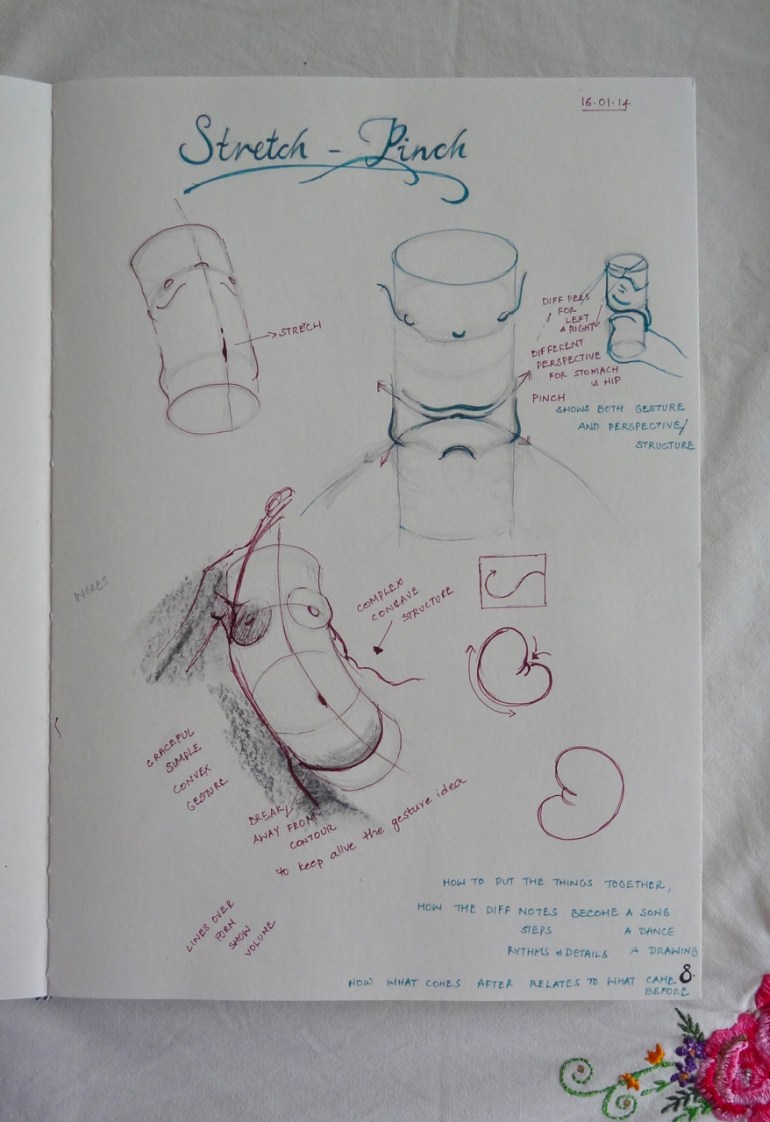 16.01.14
Stretch - Pinch
STRECH
DIFF PERS
FOR
LEFT
& RIGHT
DIFFERENT
PERSPECTIVE
FOR STOMACH
& HIP
PINCH
SHOWS BOTH GESTURE
AND PERSPECTIVE/
STRUCTURE
INGRES
COMPLEX
CONCAVE
STRUCTURE
GRACEFUL
SIMPLE
CONVEX
GESTURE
BREAK
AWAY FROM
CONTOUR
to keep alive the gesture idea
LINES OVER
FORM
SHOW
VOLUME
HOW TO PUT THE THINGS TOGETHER,
HOW THE DIFF NOTES BECOME A SONG
STEPS A DANCE
RYTHMS & DETAILS A DRAWING
HOW WHAT COMES AFTER RELATES TO WHAT CAME
BEFORE
8.